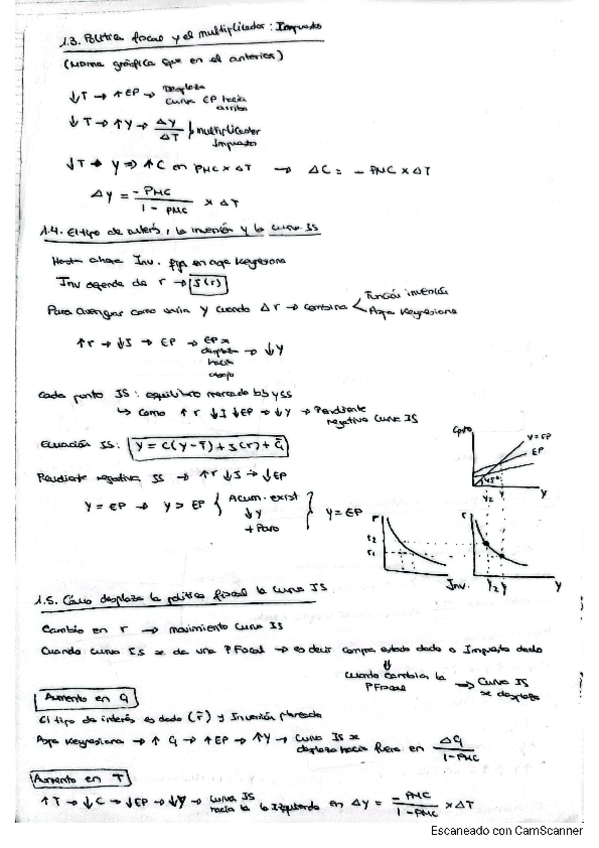 1.3. Política fiscal y el multiplicador: Impuestos
(Misma gráfica que en el anterior)
↓T → ↑EP → Desplaza
curva EP hacia
arriba
↓T → ↑Y → ΔY/ΔT } multiplicador
Impuesto
↓T → Y ⇒ ↑C en PMC × ΔT → ΔC = - PMC × ΔT
ΔY = -PMC / 1 - PMC × ΔT
1.4. El tipo de interés, la inversión y la curva IS
Hasta ahora Inv. fija en aspa Keynesiana
Inv depende de r →
Para averiguar como varía Y cuando Δr → combina < Función inversión
Aspa Keynesiana
↑r → ↓I → EP → EP se
desplaza
hacia
abajo → ↓Y
Cada punto IS: equilibrio mercado bb y ss
↳ Como ↑r ↓I ↓EP → ↓Y → Pendiente
negativa Curva IS
Ecuación IS:
Pendiente negativa IS → ↑r ↓I → ↓EP
Y = EP → Y > EP { Acum. exist
↓Y
+ Paro } Y = EP
Y=EP
EP
45°
Y2 Y Y
r
r2
r1
Inv.
r
Y2 Y Y
1.5. Cómo desplaza la política fiscal la curva IS
Cambio en r → movimiento curva IS
Cuando curva IS se da una PFiscal → es decir compra estado dado o Impuesto dado
⇓
Cuando cambia la
PFiscal → Curva IS
se desplaza
Aumento en G
El tipo de interés es dado (r̄) y Inversión planeada
Aspa Keynesiana → ↑G → ↑EP → ↑Y → Curva IS se
desplaza hacia fuera en ΔG / 1-PMC
Aumento en T
↑T → ↓C → ↓EP → ↓Y → Curva IS
hacia la izquierda en ΔY = -PMC / 1-PMC × ΔT
Escaneado con CamScanner